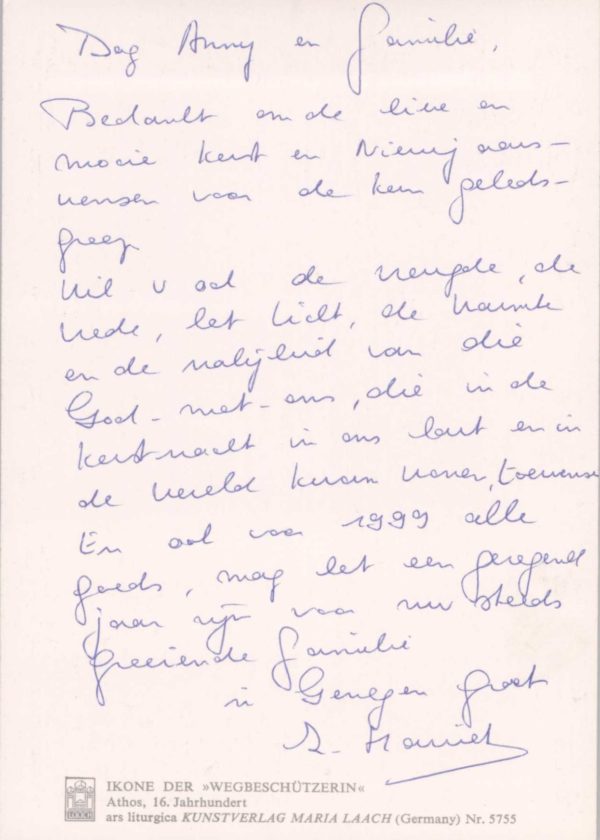 Dag Anny en familie,
Bedankt om de lieve en
mooie kerst en Nieuwjaars-
wensen voor de hem gebeds-
groep
Wil u ook de vreugde, de
vrede, het licht, de warmte
en de nabijheid van die
God-met-ons, die in de
kerstnacht in ons hart en in
de wereld kwam wonen, toewensen
En ook voor 1999 alle
goeds, mag het een gezegend
jaar zijn voor uw steeds
groeiende familie
in Genegen groet
IKONE DER »WEGBESCHÜTZERIN«
Athos, 16. Jahrhundert
ars liturgica KUNSTVERLAG MARIA LAACH (Germany) Nr. 5755
LAACH